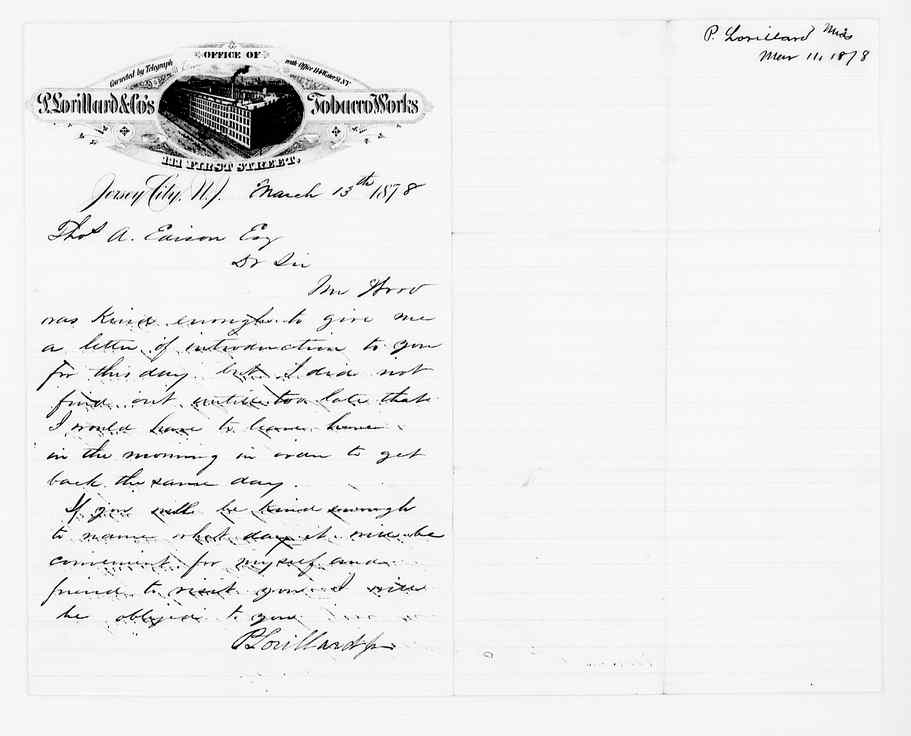 OFFICE OF
Connected by Telegraph
with Office 114 Water St. N.Y.
P. Lorillard & Co's
Tobacco Works
111 FIRST STREET.
Jersey City, N.J. March 13th 1878
Thos A. Edison Esq
Dr Sir
Mr
was kind enough to give me
a letter of introduction to you
for this day but I did not
find out untill too late that
I would have to leave here
in the morning in order to get
back the same day.
If you will be kind enough
to name what day it will be
convenient for myself and a
friend to visit you I will
be obliged to you
P Lorillard Jr
P. Lorillard
Mar 11, 1878